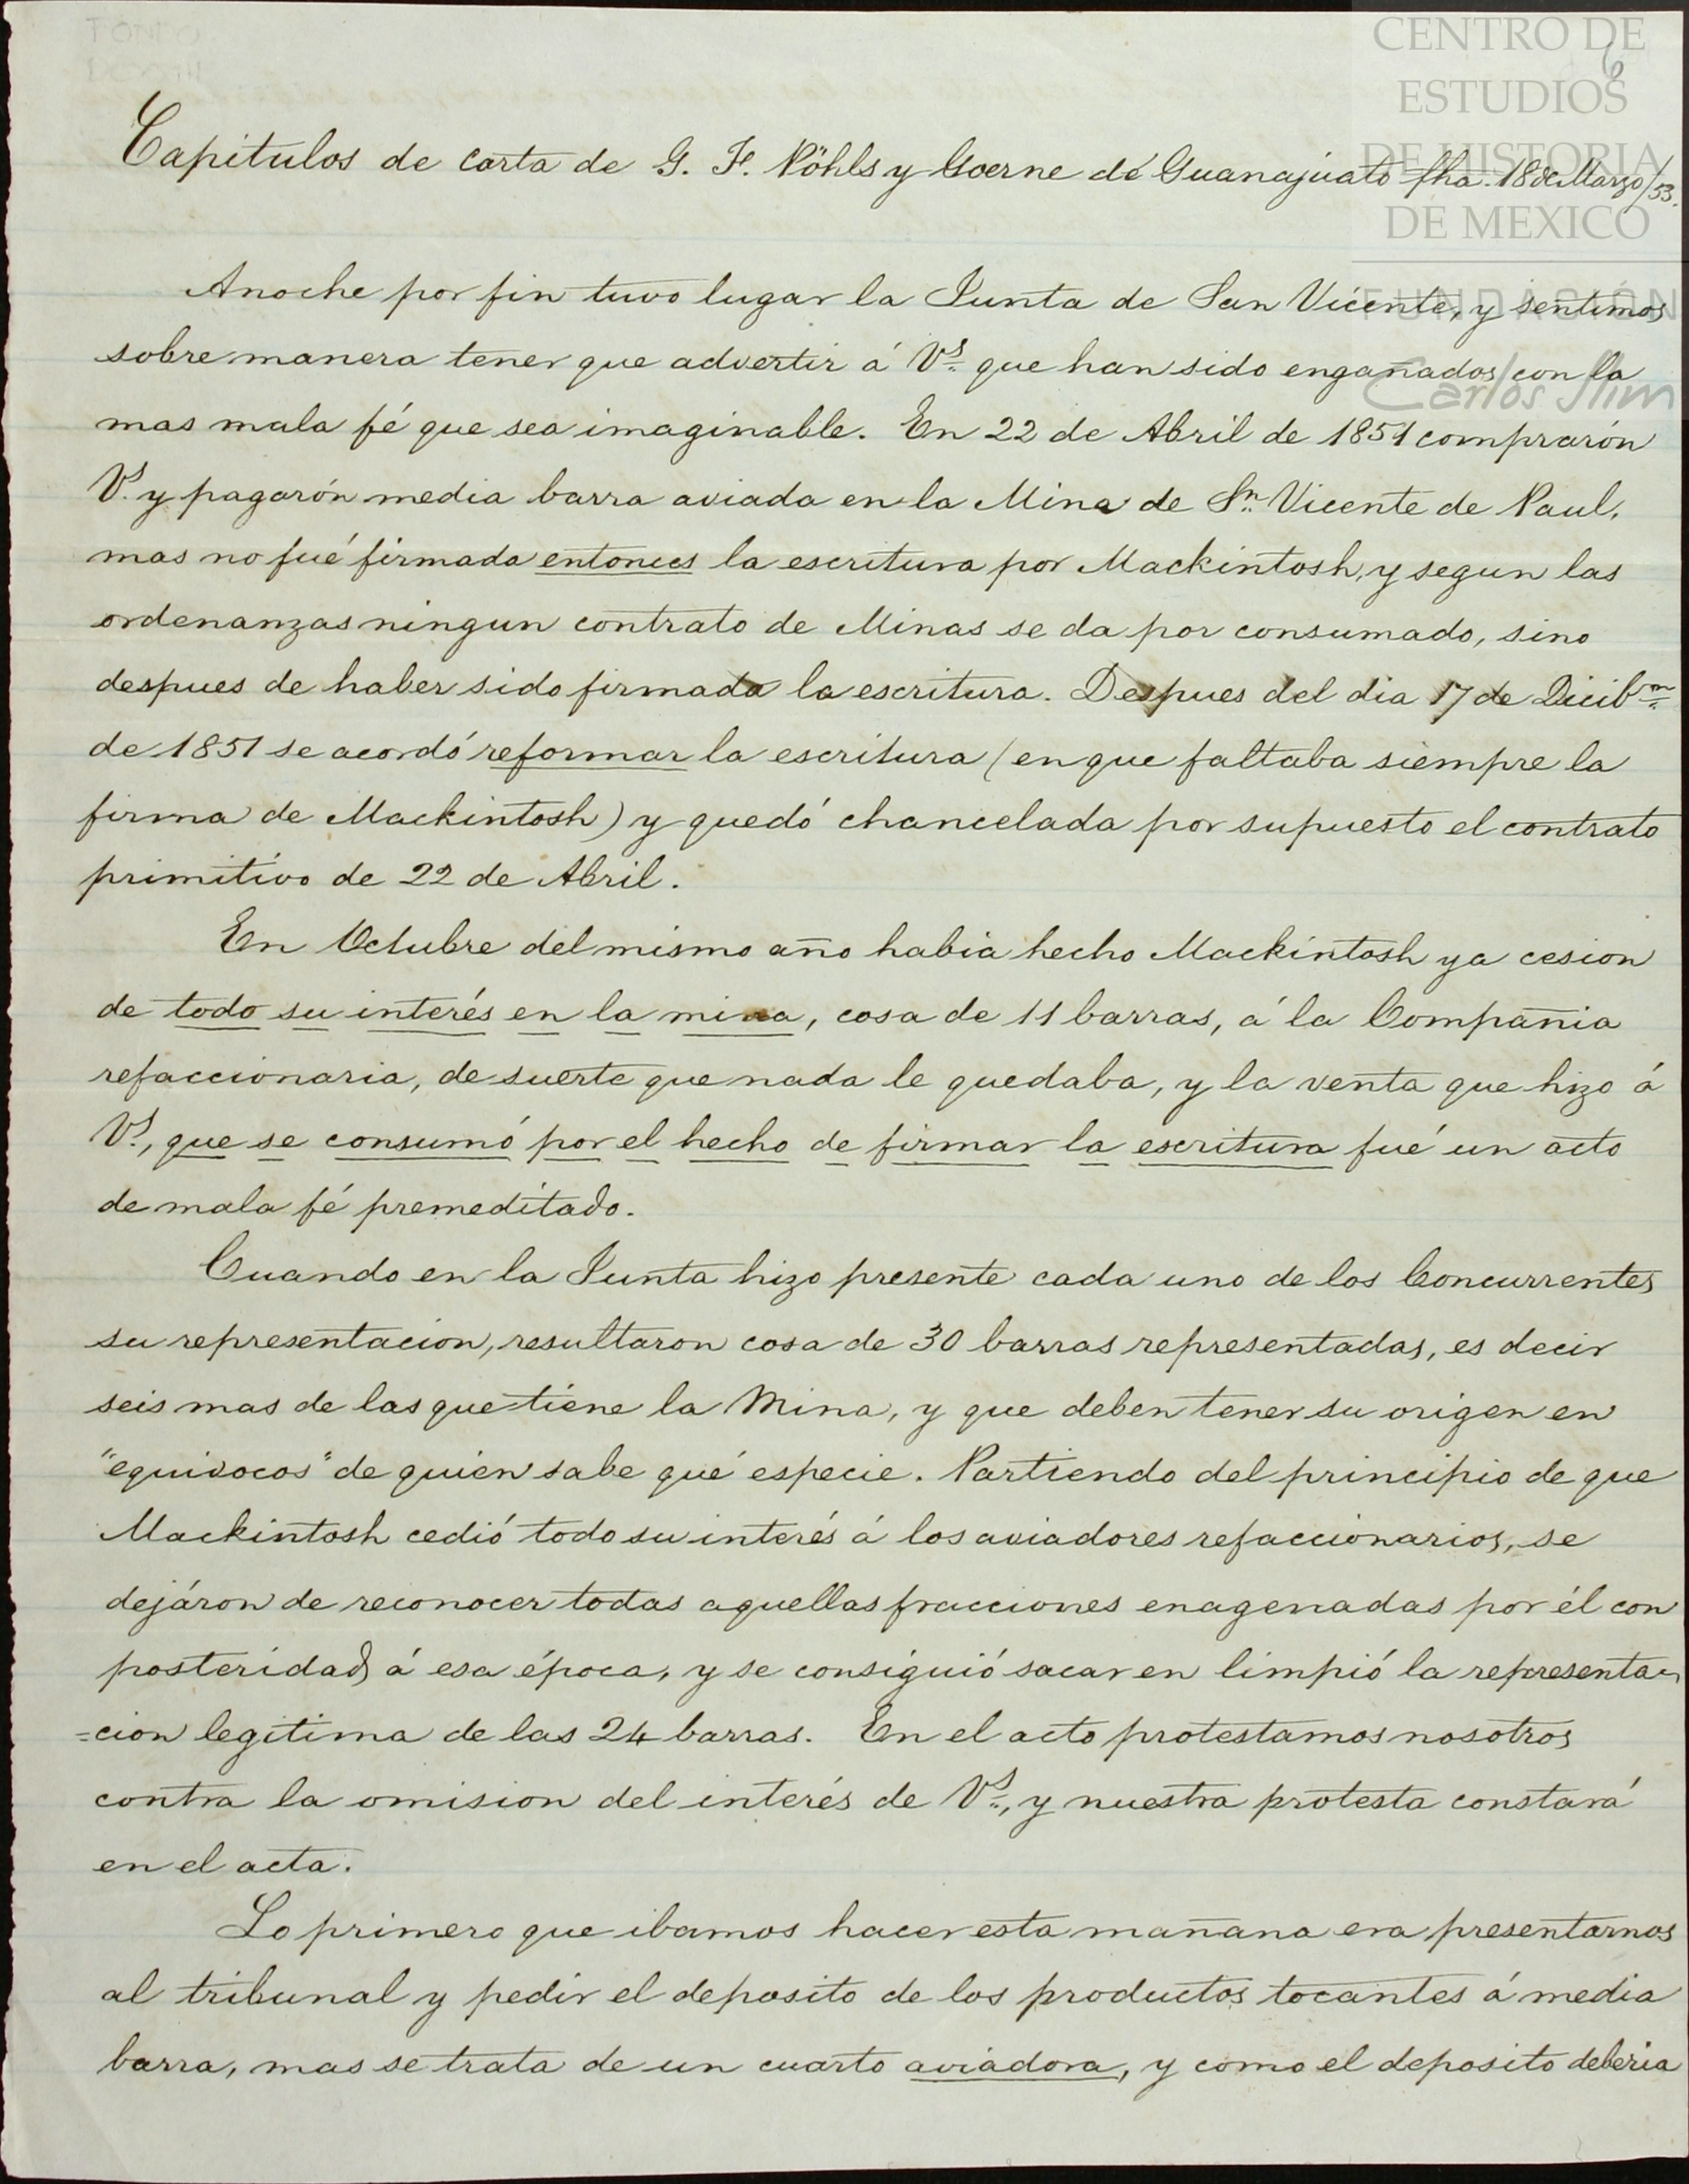 CENTRO DE
ESTUDIOS
DE HISTORIA
DE MEXICO
FUNDACIÓN
Carlos Slim
6
Capitulos de carta de G. F. Pöhls y Goerne de Guanajuato fha. 18 de Marzo/53.
Anoche por fin tuvo lugar la Junta de San Vicente, y sentimos
sobre manera tener que advertir á Vs. que han sido engañados con la
mas mala fé que sea imaginable. En 22 de Abril de 1851 comprarón
Vs. y pagarón media barra aviada en la Mina de Sn. Vicente de Paul,
mas no fué firmada entonces la escritura por Mackintosh, y segun las
ordenanzas ningun contrato de Minas se da por consumado, sino
despues de haber sido firmada la escritura. Despues del dia 17 de Dicibre
de 1851 se acordó reformar la escritura (en que faltaba siempre la
firma de Mackintosh) y quedó chancelada por supuesto el contrato
primitivo de 22 de Abril.
En Octubre del mismo año habia hecho Mackintosh ya cesion
de todo su interés en la mina, cosa de 11 barras, á la Compañia
refaccionaria, de suerte que nada le quedaba, y la venta que hizo á
Vs., que se consumó por el hecho de firmar la escritura fué un acto
de mala fé premeditado.
Cuando en la Junta hizo presente cada uno de los Concurrentes
su representacion, resultaron cosa de 30 barras representadas, es decir
seis mas de las que tiene la Mina, y que deben tener su origen en
"equivocos" de quien sabe qué especie. Partiendo del principio de que
Mackintosh cedió todo su interés á los aviadores refaccionarios, se
dejáron de reconocer todas aquellas fracciones enagenadas por él con
posteridad á esa época, y se consiguió sacar en limpió la representa=
=cion legitima de las 24 barras. En el acto protestamos nosotros
contra la omision del interés de Vs., y nuestra protesta constará
en el acta.
Lo primero que ibamos hacer esta mañana era presentarnos
al tribunal y pedir el deposito de los productos tocantes á media
barra, mas se trata de un cuarto aviadora, y como el deposito deberia